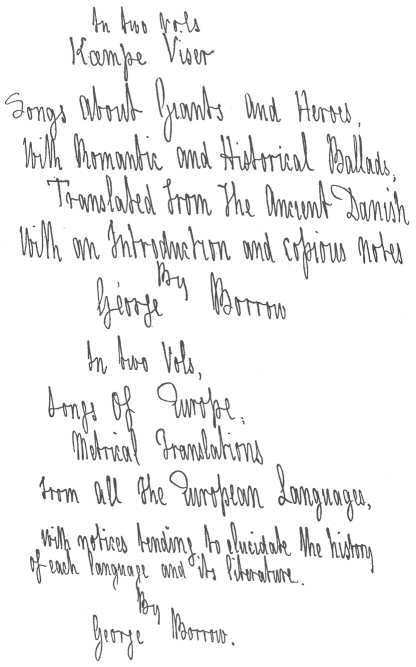 In two vols
Kæmpe Viser
Songs about Giants and Heroes,
With Romantic and Historical Ballads,
Translated from the Ancient Danish
With an Introduction and copious notes
By
George Borrow
In two Vols,
Songs Of Europe;
Metrical Translations
From all the European Languages,
with notices tending to elucidate the history
of each language and its literature.
By
George Borrow.